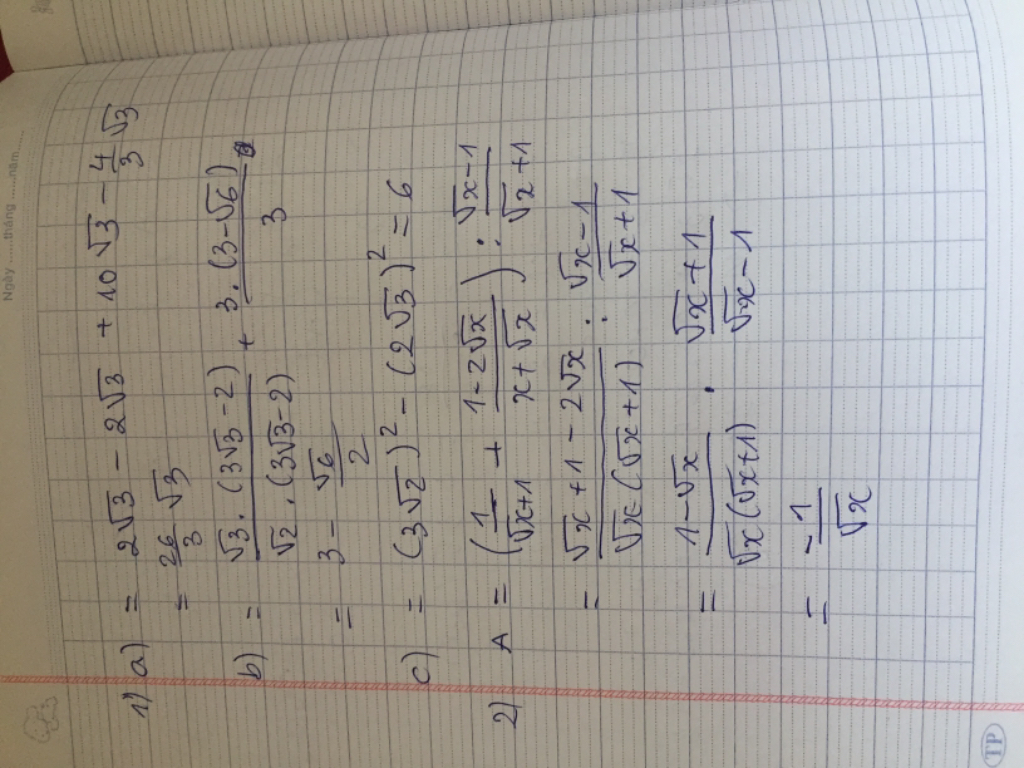 Ngày ......tháng ......năm......
1) a) = 2√3 - 2√3 + 10√3 - 4/3 √3
= 26/3 √3
b) = √3.(3√3-2)/√2.(3√3-2) + 3.(3-√6)/3
= 3 - √6/2
c) = (3√2)² - (2√3)² = 6
2) A = (1/√x+1 + 1-2√x/x+√x) : √x-1/√x+1
= √x+1-2√x/√x(√x+1) : √x-1/√x+1
= 1-√x/√x(√x+1) . √x+1/√x-1
= -1/√x
TP